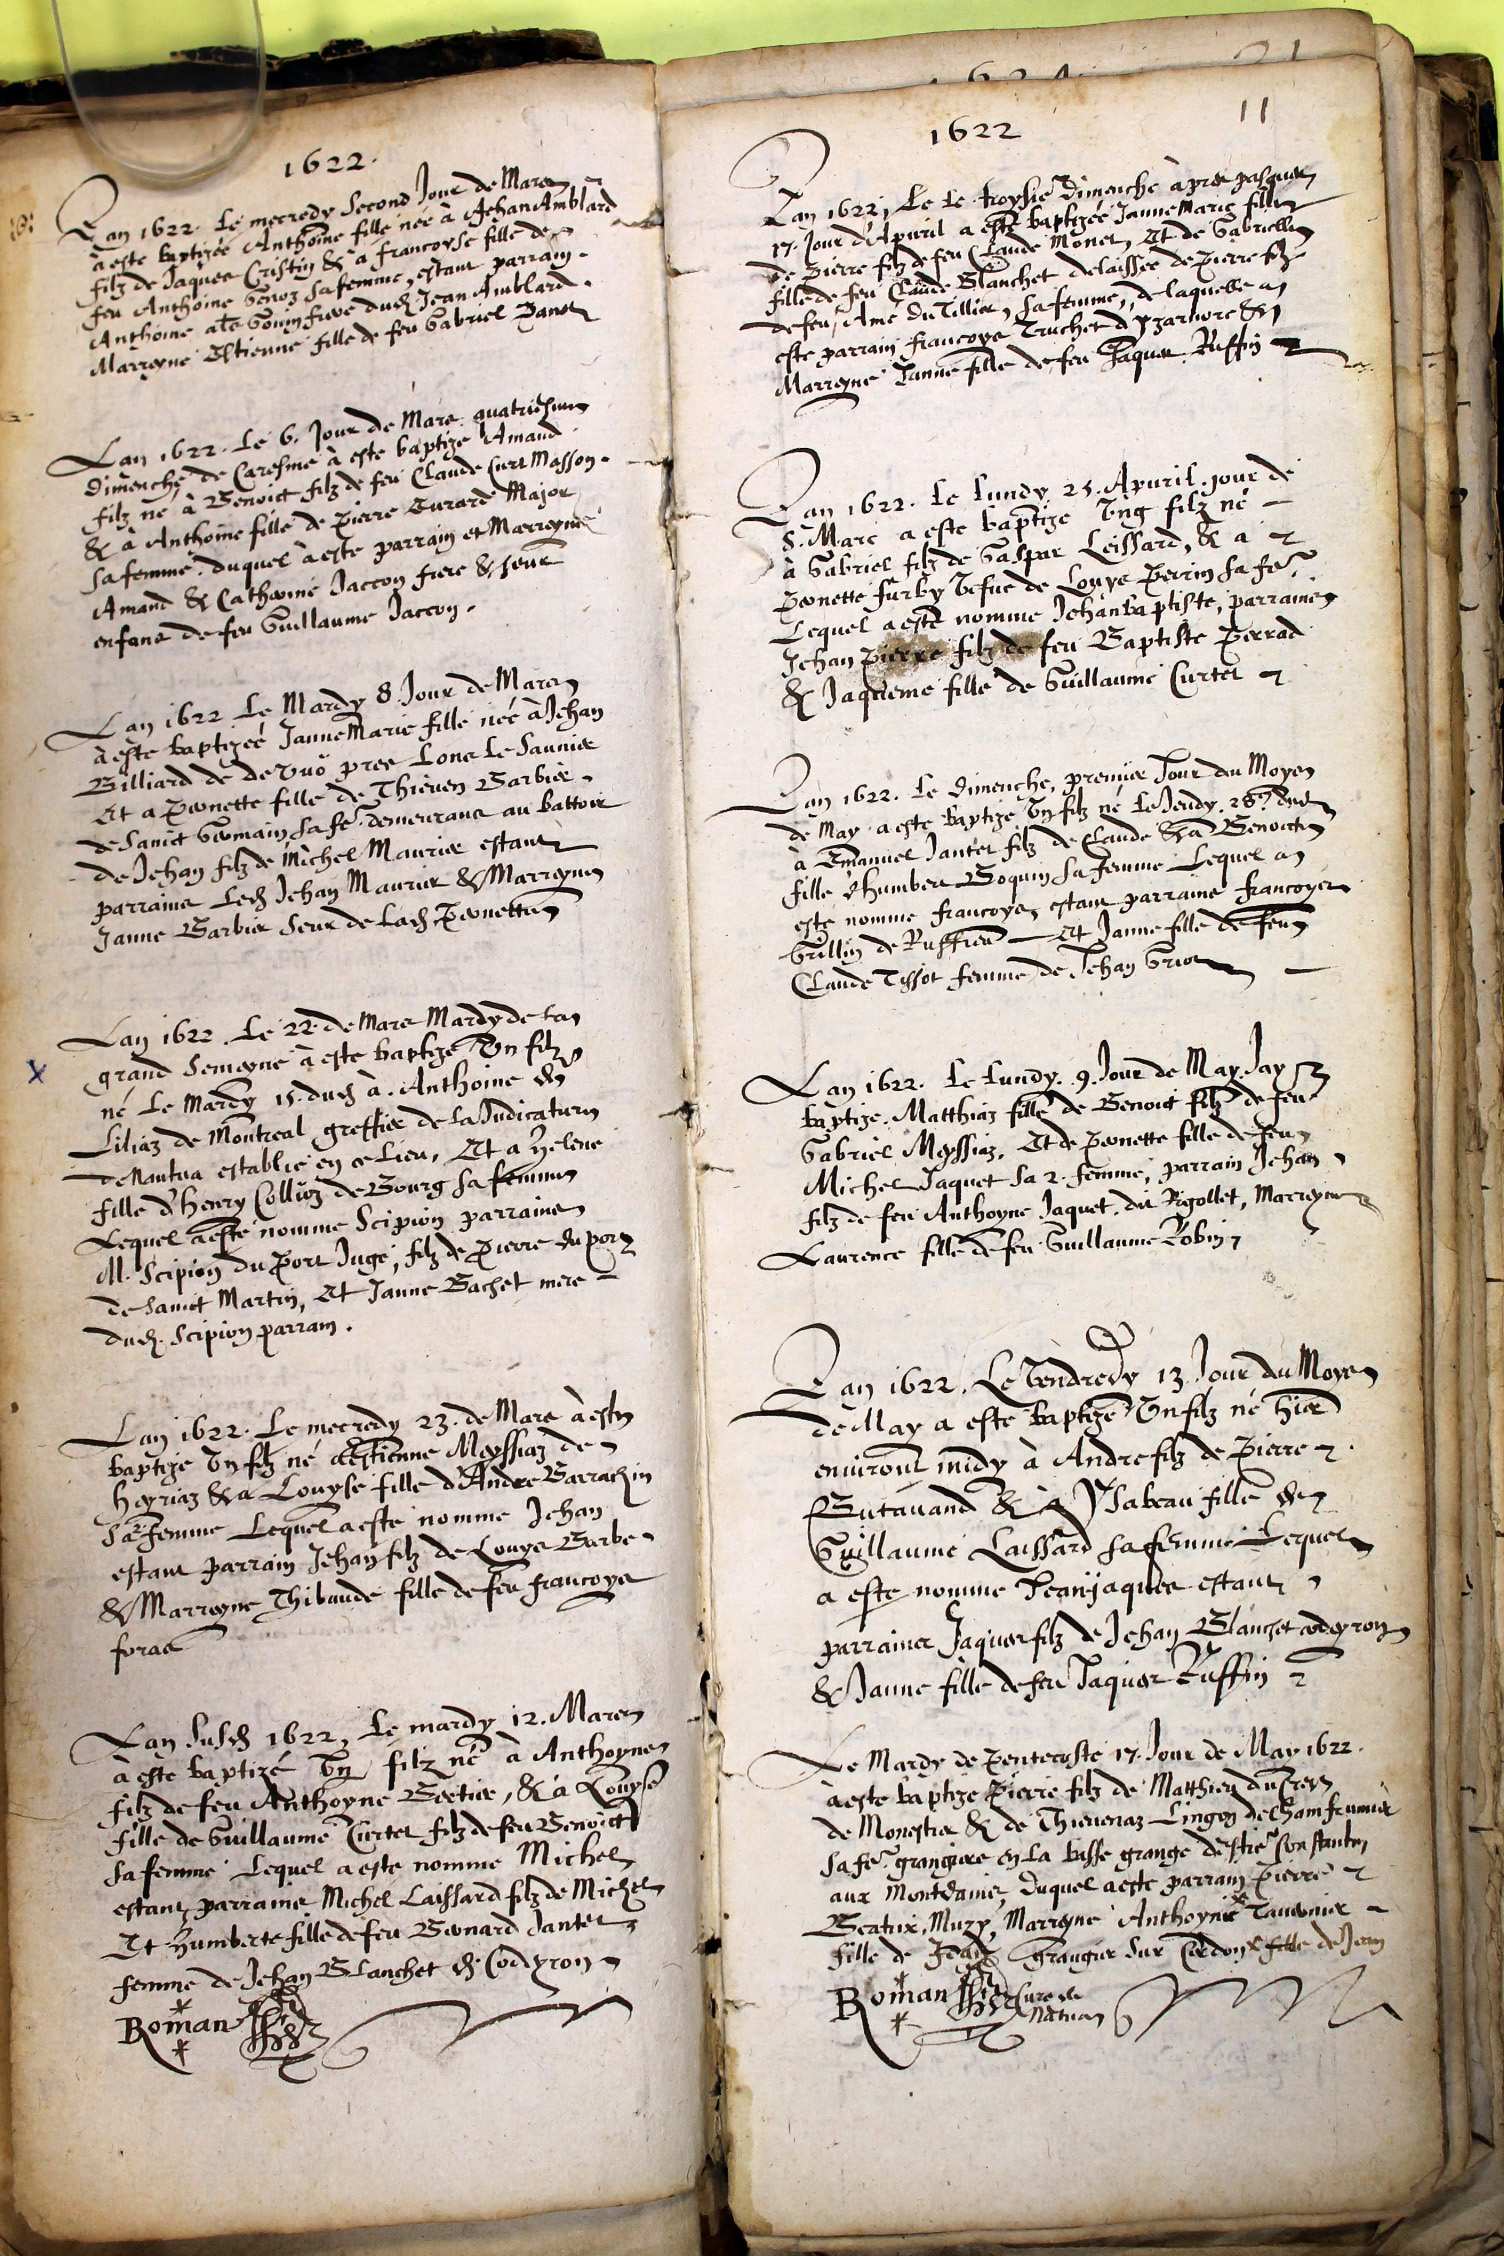 1622.
Lan 1622. Le mecredy second Jour de Mars
à este baptizée Anthoine fille née à Jehan Amblard
filz de Jaques Cristin & a francoyse fille de
feu Anthoine Genoz sa femme, estant parrain
Anthoine frere dud Jean Amblard.
Marreyne Estienne fille de feu Gabriel
Lan 1622. Le 6. Jour de Mars quatriesme
Dimenche de Caresme à este baptize Amand
filz né à Benoict filz de feu Claude Curt Masson
& à Anthoine fille de Pierre Turard Major
sa femme. duquel à este parrain et Marreyne
Amand & Catherine Jaccon frere & seur
enfans de feu Guillaume Jaccon.
Lan 1622 Le Mardy 8. Jour de Mars
à este baptizeé JanneMarie fille née à Jehan
Billiard de pres Lons Le Saunier
Et a Pernette fille de Thieven Barbier
de Sainct Germain sa fe. demeurans au battoir
de Jehan filz de Michel Maurier estant
parrains Led Jehan Maurier & Marreyne
Janne Barbier seur de Lad Pernette
Lan 1622. Le 22. de Mars Mardy de La
grand Semeyne à este baptizé Un filz
né Le Mardy 15. dud à Anthoine de
Liliaz de Montreal greffier de La Judicature
de Nantua establie en ce Lieu, Et a Helene
fille d'Henry Colliez de Bourg sa femme
Lequel a esté nomme Scipion parrains
M. Scipion du Port Juge, filz de Pierre du port
de Sainct Martin, Et Janne Bachet mere
dud. Scipion parrain.
Lan 1622. Le mecredy 23. de Mars à este
baptize Un filz né Estienne Meyssiaz de
Heyriaz & a Louyse fille d'Andre Barrachin
Sa femme Lequel a este nomme Jehan
estant parrain Jehan filz de Louys Barbe
& Marreyne Thibaude fille de feu francoys
foras
Lan susd 1622, Le mardy 12. Mars
à este baptizé Un filz né à Anthoyne
filz de feu Anthoyne Bertier, & à Louyse
fille de Guillaume Curtet filz de feu Benoict
sa femme Lequel a este nomme Michel
estant parrains Michel Laissard filz de Michel
Et Humberte fille de feu Bernard Jantet
femme de Jehan Blanchet de Coddyron
Roman
1622
11
Lan 1622, Le Le troysie Dimenche àpres pasques
17. Jour d'Apvril a este baptizéé JanneMarie fille
de Pierre filz de feu Claude Monet, Et de Gabrielle
fille de feu Claude Blanchet delaissée de Pierre filz
de feu Ame Du Tillier, sa femme, de laquelle a
este parrain francoys Truchet d'Yzarnore &
Marreyne Janne fille de feu Jaques Ruffin
Lan 1622. Le Lundy 25. Apvril jour de
S. Marc a este baptize Ung filz né
à Gabriel filz de Gaspar Leissard, & a
Pernette furby Vefve de Louys Perrin sa fe.
Lequel a este nomme Jehanbaptiste, parrains
Jehan Pierre filz de feu Baptiste Perrad
& Jaqueme fille de Guillaume Curtet
Lan 1622. Le Dimenche, premier Jour du Moys
de May a este baptize Un filz né Le Jeudy 28 dud
à Emanuel Jantet filz de Claude & a Benoicte
fille d'humbert Boquin sa femme Lequel a
este nomme francoys, estant parrains francoys
Grillin de Ruffieu Et Janne fille de feu
Claude Tissot femme de Jehan Griot
Lan 1622. Le Lundy. 9. Jour de May. Jay
baptize. Matthiaz fille de Benoit filz de feu
Gabriel Meyssiaz, Et de Pernette fille de feu
Michel Jaquet sa 2. femme, parrain Jehan
filz de feu Anthoyne Jaquet. dit Rigollet, Marreyne
Laurence fille de feu Guillaume Robin
Lan 1622. Le Vendredy 13. Jour du Moys
de May a este baptize Un filz né hier
environ midy à Andre filz de Pierre
Gutavand & a Ysabeau fille de
Guillaume Laissard sa femme Lequel
a este nomme Jeanjaques estant
parrains Jaques filz de Jehan Blanchet codeyron
& Janne fille de feu Jaques Ruffin
Le Mardy de Pentecoste 17. Jour de May 1622.
à este baptize Pierre filz de Matthieu du Crey
de Monestier & de Thievenaz Lingon de Chamfrumier
sa fe. grangiers en La basse grange
aux Montdainier, Duquel a este parrain Pierre
Beatrix, Muzy, Marreyne Anthoynie Tavernier
fille de Jean Grangier sur Cerdon & fille de Jean
Roman Cure de
Nantua